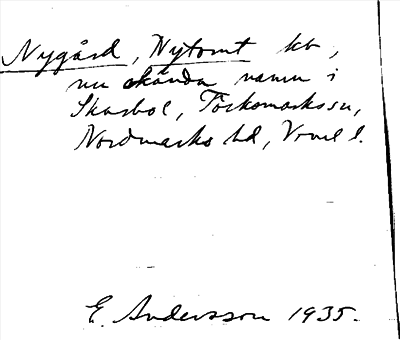 Nygård, Nytomt kb,
nu okända namn i
Skarbol, Töcksmarks sn,
Nordmarks hd, Vrml l.
E. Andersson 1935.